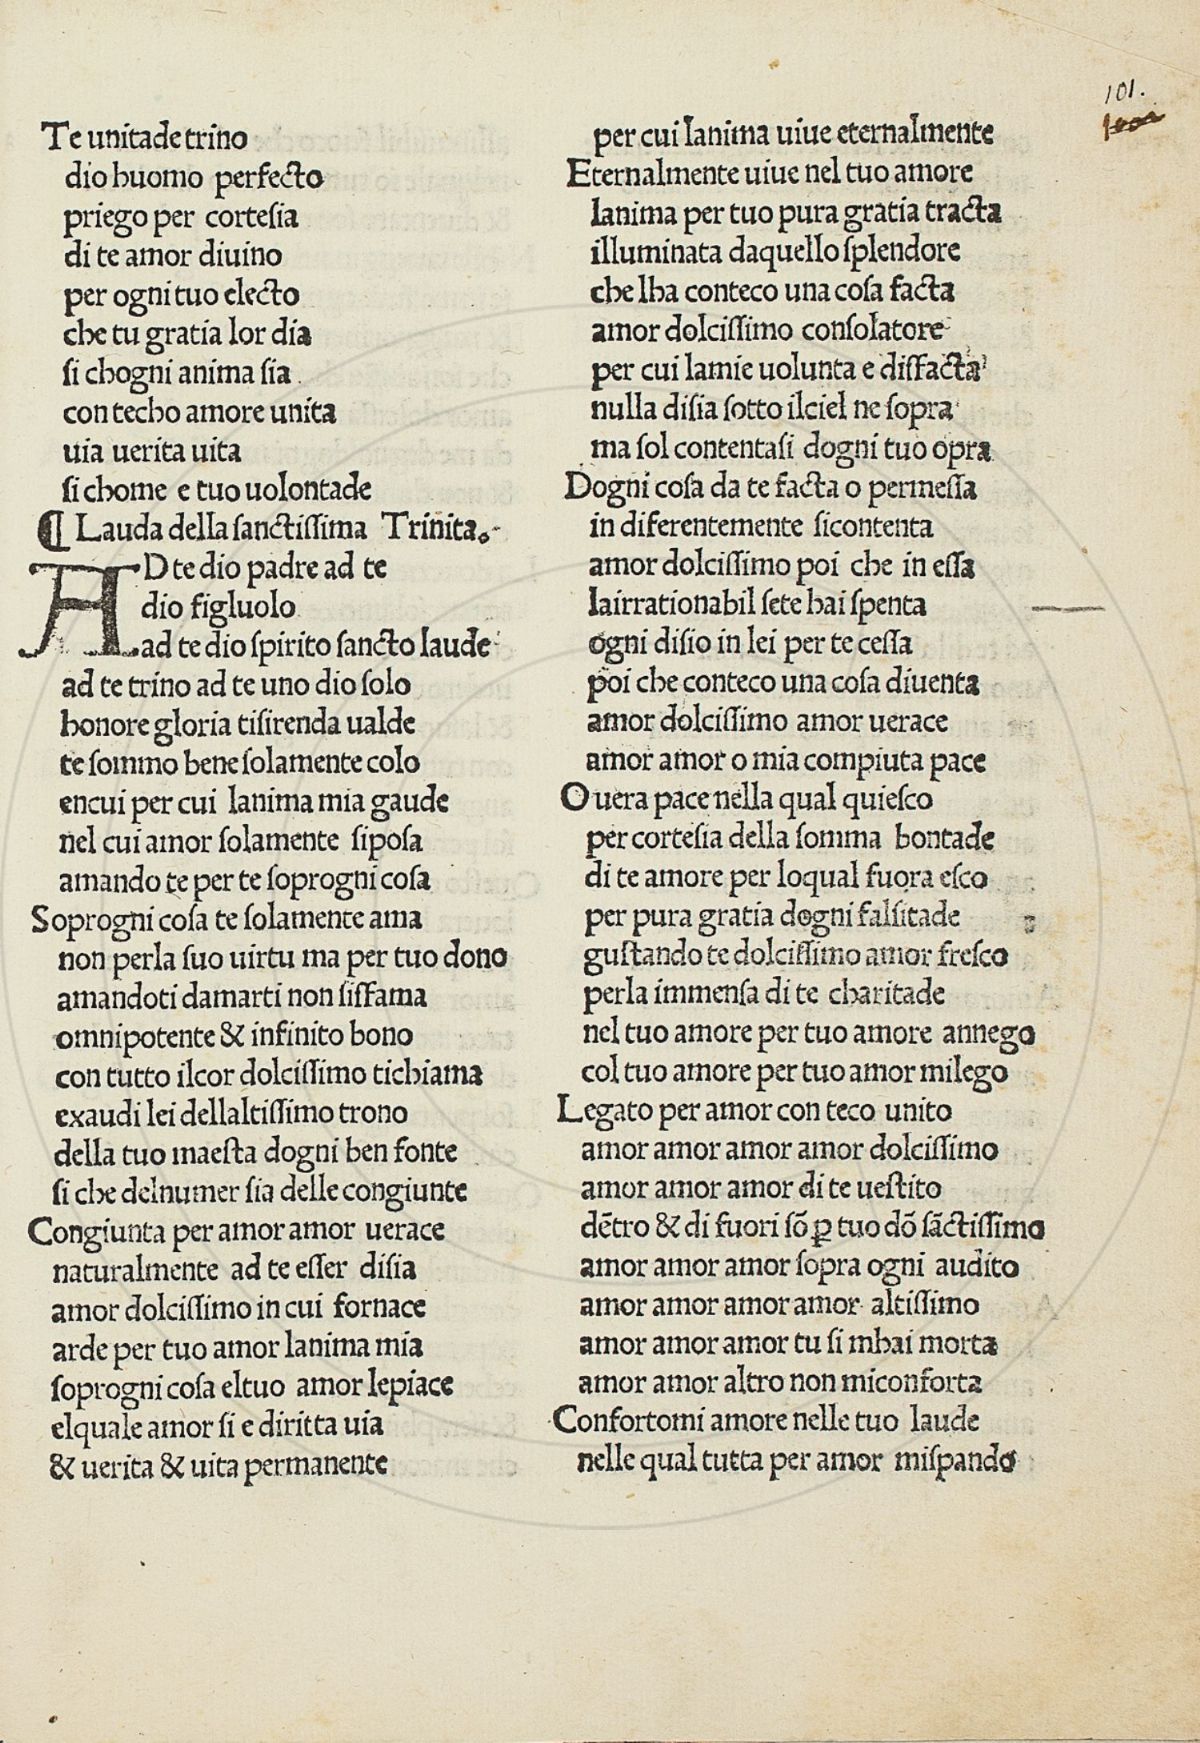 101.
Te unitade trino
dio huomo perfecto
priego per cortesia
di te amor diuino
per ogni tuo electo
che tu gratia lor dia
si chogni anima sia
con techo amore unita
uia uerita uita
si chome e tuo uolontade
¶ Lauda della sanctissima Trinita.
AD te dio padre ad te
dio figluolo
ad te dio spirito sancto laude
ad te trino ad te uno dio solo
honore gloria tisirenda ualde
te sommo bene solamente colo
encui per cui lanima mia gaude
nel cui amor solamente siposa
amando te per te soprogni cosa
Soprogni cosa te solamente ama
non perla suo uirtu ma per tuo dono
amandoti damarti non sissama
omnipotente & infinito bono
con tutto ilcor dolcissimo tichiama
exaudi lei dellaltissimo trono
della tuo maesta dogni ben fonte
si che delnumer sia delle congiunte
Congiunta per amor amor uerace
naturalmente ad te esser disia
amor dolcissimo in cui fornace
arde per tuo amor lanima mia
soprogni cosa eltuo amor lepiace
elquale amor si e diritta uia
& uerita & uita permanente
per cui lanima uiue eternalmente
Eternalmente uiue nel tuo amore
lanima per tuo pura gratia tracta
illuminata daquello splendore
che lha conteco una cosa facta
amor dolcissimo consolatore
per cui lamie uolunta e disfacta
nulla disia sotto ilciel ne sopra
ma sol contentasi dogni tuo opra
Dogni cosa da te facta o permessa
in diferentemente sicontenta
amor dolcissimo poi che in essa
lairrationabil sete hai spenta
ogni disio in lei per te cessa
poi che conteco una cosa diuenta
amor dolcissimo amor uerace
amor amor o mia compiuta pace
O uera pace nella qual quiesco
per cortesia della somma bontade
di te amore per loqual fuora esco
per pura gratia dogni falsitade
gustando te dolcissimo amor fresco
perla immensa di te charitade
nel tuo amore per tuo amore annego
col tuo amore per tuo amor milego
Legato per amor con teco unito
amor amor amor amor dolcissimo
amor amor amor di te uestito
dētro & di fuori sō ꝑ tuo dō sāctissimo
amor amor amor sopra ogni audito
amor amor amor amor altissimo
amor amor amor tu si mhai morta
amor amor altro non miconforta
Confortomi amore nelle tuo laude
nelle qual tutta per amor mispando